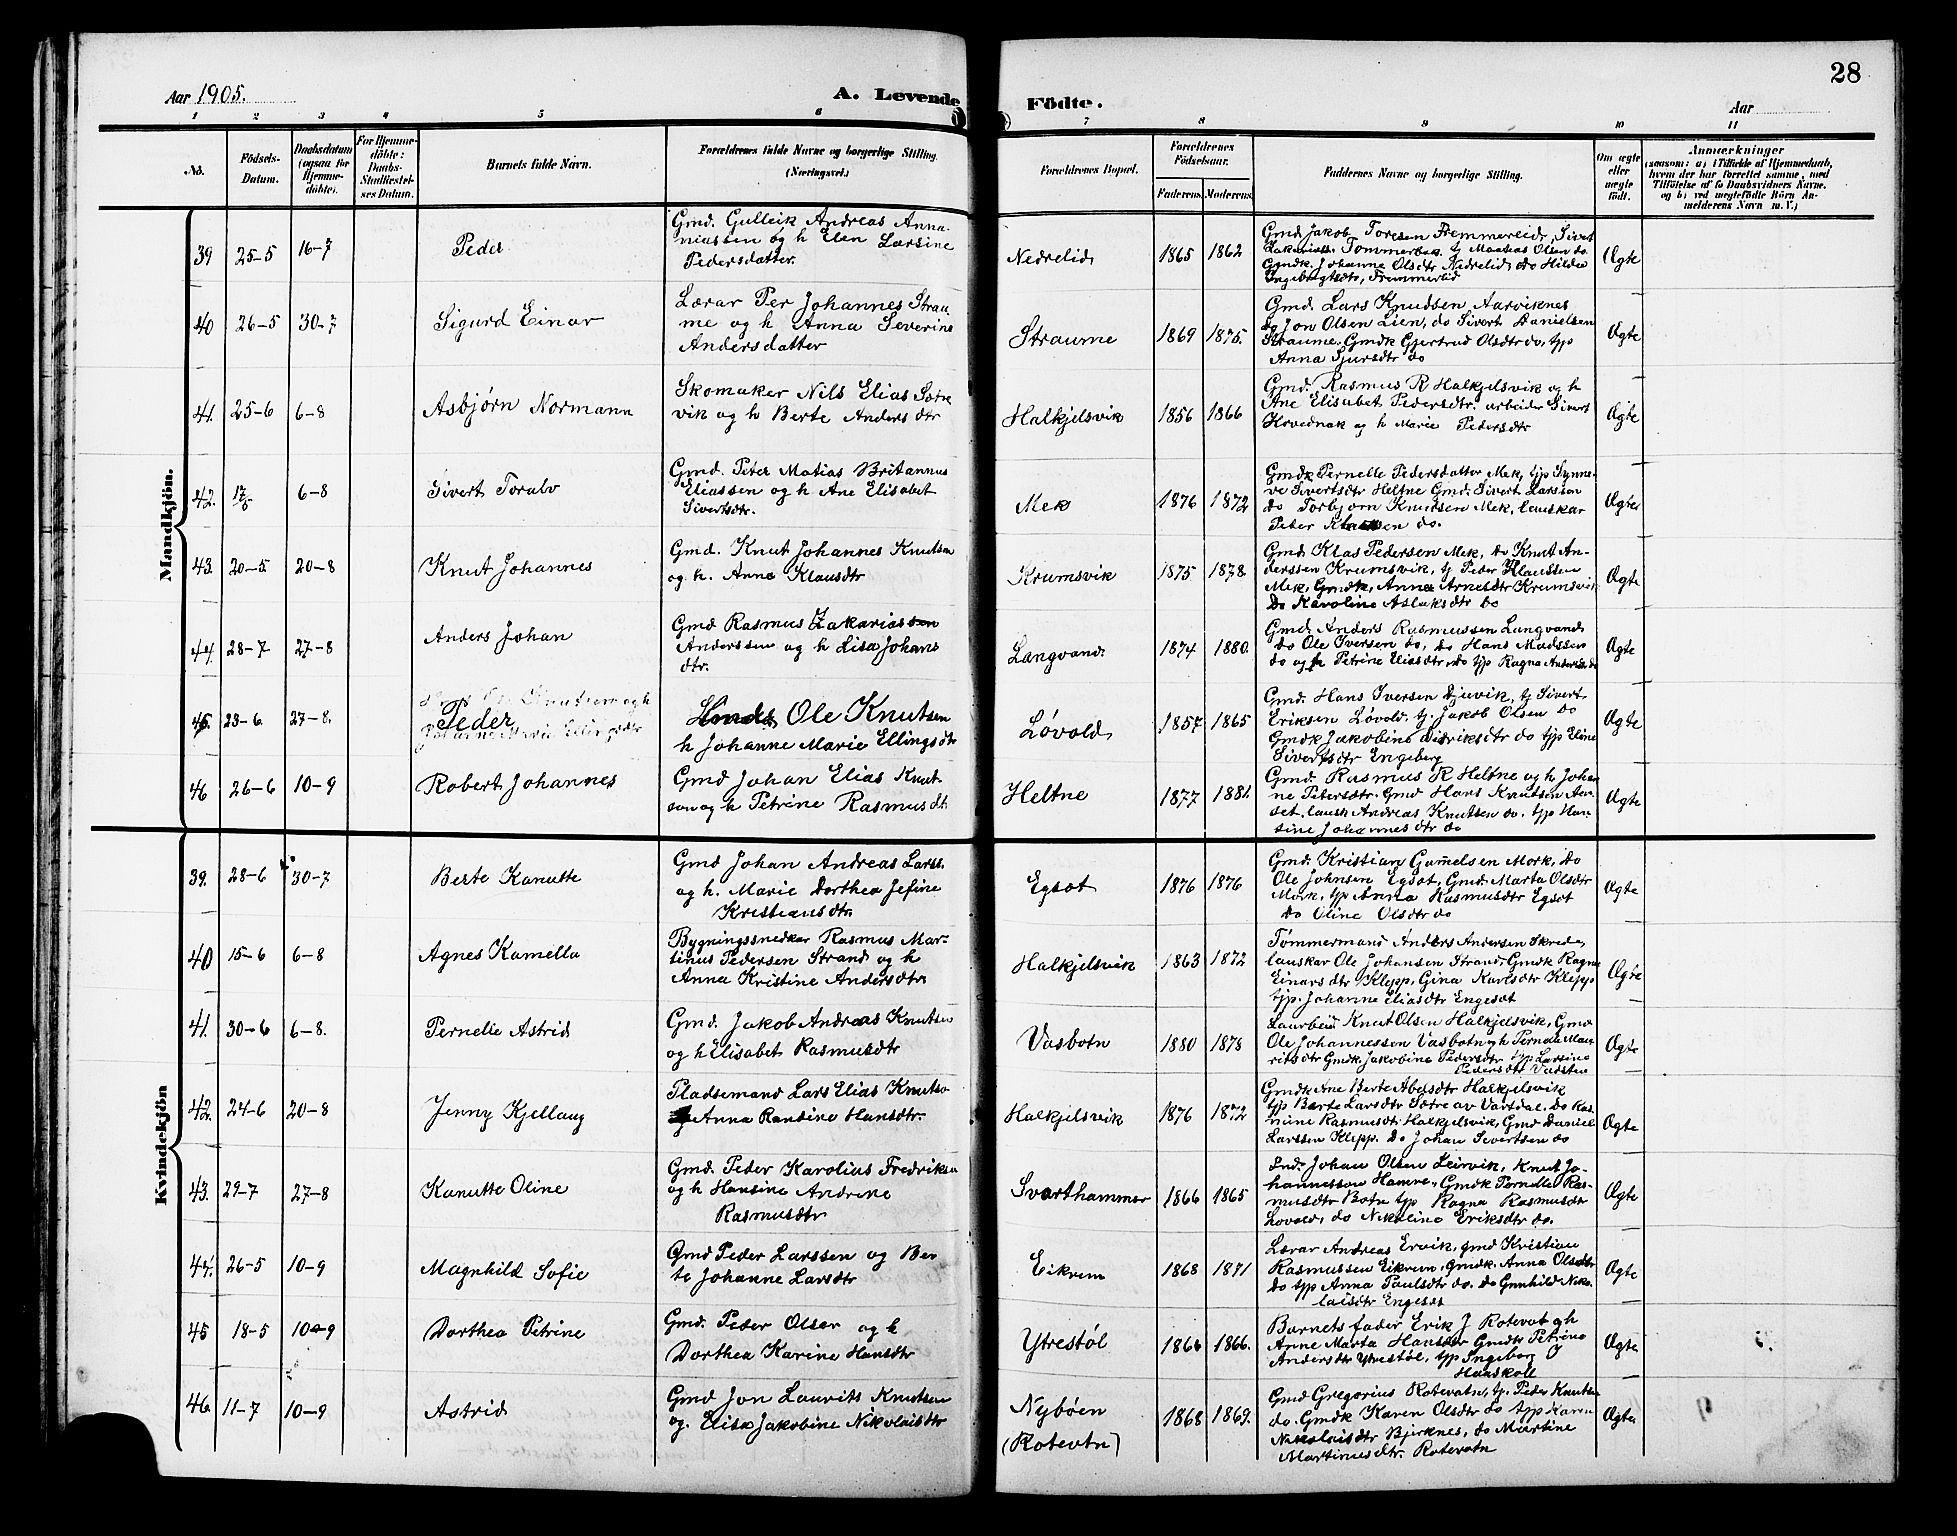 28
Aar 1905.
A. Levende Födte.
Aar
1 2 3 4 5 6 7 8 9 10 11
No.
Födsels-Datum.
Daabsdatum (ogsaa for Hjemmedöbte).
For Hjemmedöbte: Daabs-Stadfæstelses Datum.
Barnets fulde Navn.
Forældrenes fulde Navne og borgerlige Stilling. (Næringsvei.)
Forældrenes Bopæl.
Forældrenes Födselsaar.
Faderens. Moderens.
Faddernes Navne og borgerlige Stilling.
Om ægte eller uægte födt.
Anmærkninger
(saasom: a) i Tilfælde af Hjemmedaab,
hvem der har forrettet samme, med
Tilföielse af to Daabsvidners Navne.
og b) ved uægtefödte Börn Anmelderens Navn m. V.)
Mandkjön.
39 25-5 16-7 Peder
Gmd. Gulleik Andreas Annaniassen og h Elen Larsine
Pedersdatter.
Nedrelid 1865 1862
Gmd. Jakob Toresen Fremmerlid, Sivert
Tommerbak. tj Matias Olsen do
Gmdk. Johanne Olsdtr Nedrelid, do Hilda
Ingebrigtsdtr, Fremmerlid
Ægte
40 26-5 30-7 Sigurd Einar
Lærar Per Johannes Straume og h Anna Severine
Andersdatter
Straume 1869 1875.
Gmd. Lars Knudsen Aarviknes
do Jon Olsen Lien, do Sivert Danielsen
Straume. Gmdk Gjertrud Olsdtr do, tjp
Anna Sjursdtr do
Ægte
41. 25-6 6-8 Asbjørn Normann
Skomaker Nils Elias Sætrevik og h Berte Andersdtr
Halkjelsvik 1856 1866
Gmd. Rasmus R Halkjelsvik og h
Ane Elisabet Pedersdtr. arbeider Sivert
Hovednak og h Marie Pedersdtr
Ægte
42. 17/6 6-8 Sivert Toralv
Gmd. Peter Matias Britannus
Eliassen og h Ane Elisabet
Sivertsdtr.
Mek 1876 1872
Gmdk Pernelle Pedersdatter Mek, tjp Synneve Sivertsdtr Heltne Gmd. Sivert Larssen
do Torbjørn Knutsen Mek, lauskar
Peter Klassen do.
Ægte
43. 20-5 20-8 Knut Johannes
Gmd. Knut Johannes Knutsen
og h. Anne Klausdtr
Krumsvik 1875 1878
Gmd Klas Pedersen Mek, do Knut Anderssen Krumsvik, tj Peder Klaussen
Mek, Gmdk, Anne Arnesdtr Krumsvik
Do Karoline Aslaksdtr do
Ægte
44. 28-7 27-8 Anders Johan
Gmd Rasmus Zakarias
Anderssen og h Lisa Johansdtr.
Langvand. 1874 1880.
Gmd. Anders Rasmussen Langvand,
do Ole Iversen do, do Hans Madssen
do og h Petrine Eliasdtr, do tjp Ragna Andersdtr do
Ægte
45. 23-6 27-8. Peder
Ole Knutsen
h Johanne Marie Ellingsdtr
Løvold 1857 1865
Gmd. Hans Iversen Djuvik, tj Sivert
Eriksen Løvold. tj. Jakob Olsen do
Gmdk Jakobine Didriksdtr do tjp Eline
Sivertsdtr Engeberg
Ægte
46 26-6 10-9 Robert Johannes
Gmd Johan Elias Knutsen og h Petrine Rasmusdt.
Heltne 1877 1881.
Gmd. Rasmus R Heltne og h Johanne Petersdtr. Gmd Hans Knutsen Aanset, lausk Andreas Knutsen do. tjp Hansine Johannesdtr do
Ægte
Kvindekjön
39. 28-6 30-7 Berte Kanutte
Gmd Johan Andreas Larss.
og h. Marie Dorthea Jefine
Kristiansdtr.
Egsæt 1876 1876
Gmd. Kristian Gamelsen Mork, do
Ole Johnsen Egsæt, Gmd. Marta Olsdtr
Mork, tjp Anna Rasmusdtr Egsæt
do Oline Olsdtr do
Ægte
40 15-6 6-8 Agnes Kamella
Bygningssnedker Rasmus Martinus Pedersen Strand og h
Anna Kristine Andersdtr.
Halkjelsvik 1863 1872
Tømmermand Anders Andersen Skrede,
lauskar Ole Johansen Strand, Gmdk Ragna
Einarsdtr Klepp, Gina Karlsdtr Klepp
tjp. Johanne Eliasdtr Engesæt
Ægte
41. 30-6 6-8. Pernelle Astrid
Gmd. Jakob Andreas Knutsen
og h Elisabet Rasmusdtr
Vasbotn 1880 1878
Knut Olsen Halkjelsvik, Gmd
Ole Johannessen Vasbotn og h Pernelle Mauritsdtr Gmdk. Jakobine Pedersdtr tjp Larsine
Pedersdtr Vadsten
Ægte
42. 24-6 20-8 Jenny Kjellaug
Pladsemand Lars Elias Knutsen
Anna Ransine Hansdtr.
Halkjelsvik 1876 1872
Gmdk Ane Berte Abelsdtr Halkjelsvik
tjp Berte Larsdtr Sætre av Vartdal, do Rasmine Rasmusdtr Halkjelsvik, Gmd Daniel
Larssen Klepp. Do Johan Sivertsen do
Ægte
43. 29-7 27-8 Kanutte Oline
Gmd. Peder Karolius Fredriksen
og h Hansine Andrine
Rasmusdtr
Svarthammer 1866 1865
Johan Olsen Leirvik, Knut Johannessen Hamre, Gmdk Pernelle Rasmusdtr Botn tjp Ragna Rasmusdtr
Lovold, do Nikoline Eriksdtr do.
Ægte
44. 26-5 10-9 Magnhild Sofie
Gmd Peder Larssen og Berte Johanne Larsdtr
Eikrem 1868 1871
Lærar Andreas Ervik, gmd Kristian
Rasmussen Eikrem, Gmdk. Anna Olsdtr
Do tjp Anna Paulsdtr do. do Gunhild Nikolaisdtr Engeset
Ægte
45 18-5 10-9 Dorthea Petrine
Gmd. Peder Olsen og h
Dorthea Karine Hansdtr
Ytrestøl 1866 1866.
Barnets fader Erik J Rotevat og h
Anne Marta Hansdtr Gmdk Petrine
Andersdtr Ytrestøl, tjp Ingeborg
Ægte
46 11-7 10-9 Astrid
Gmd Jon Laurits Knutsen
og. Elise Jakobine Nikolaisdtr
Nybøen
(Rotevtn) 1868 1869.
Gmd Gregorius Rotevatn, tj. Peder Knutsen
do. Gmdk Karen Olsdtr do tjp Karen
Nikolaisdtr Bjerknes, do Martine
Martinusdtr. Rotevatn
Ægte